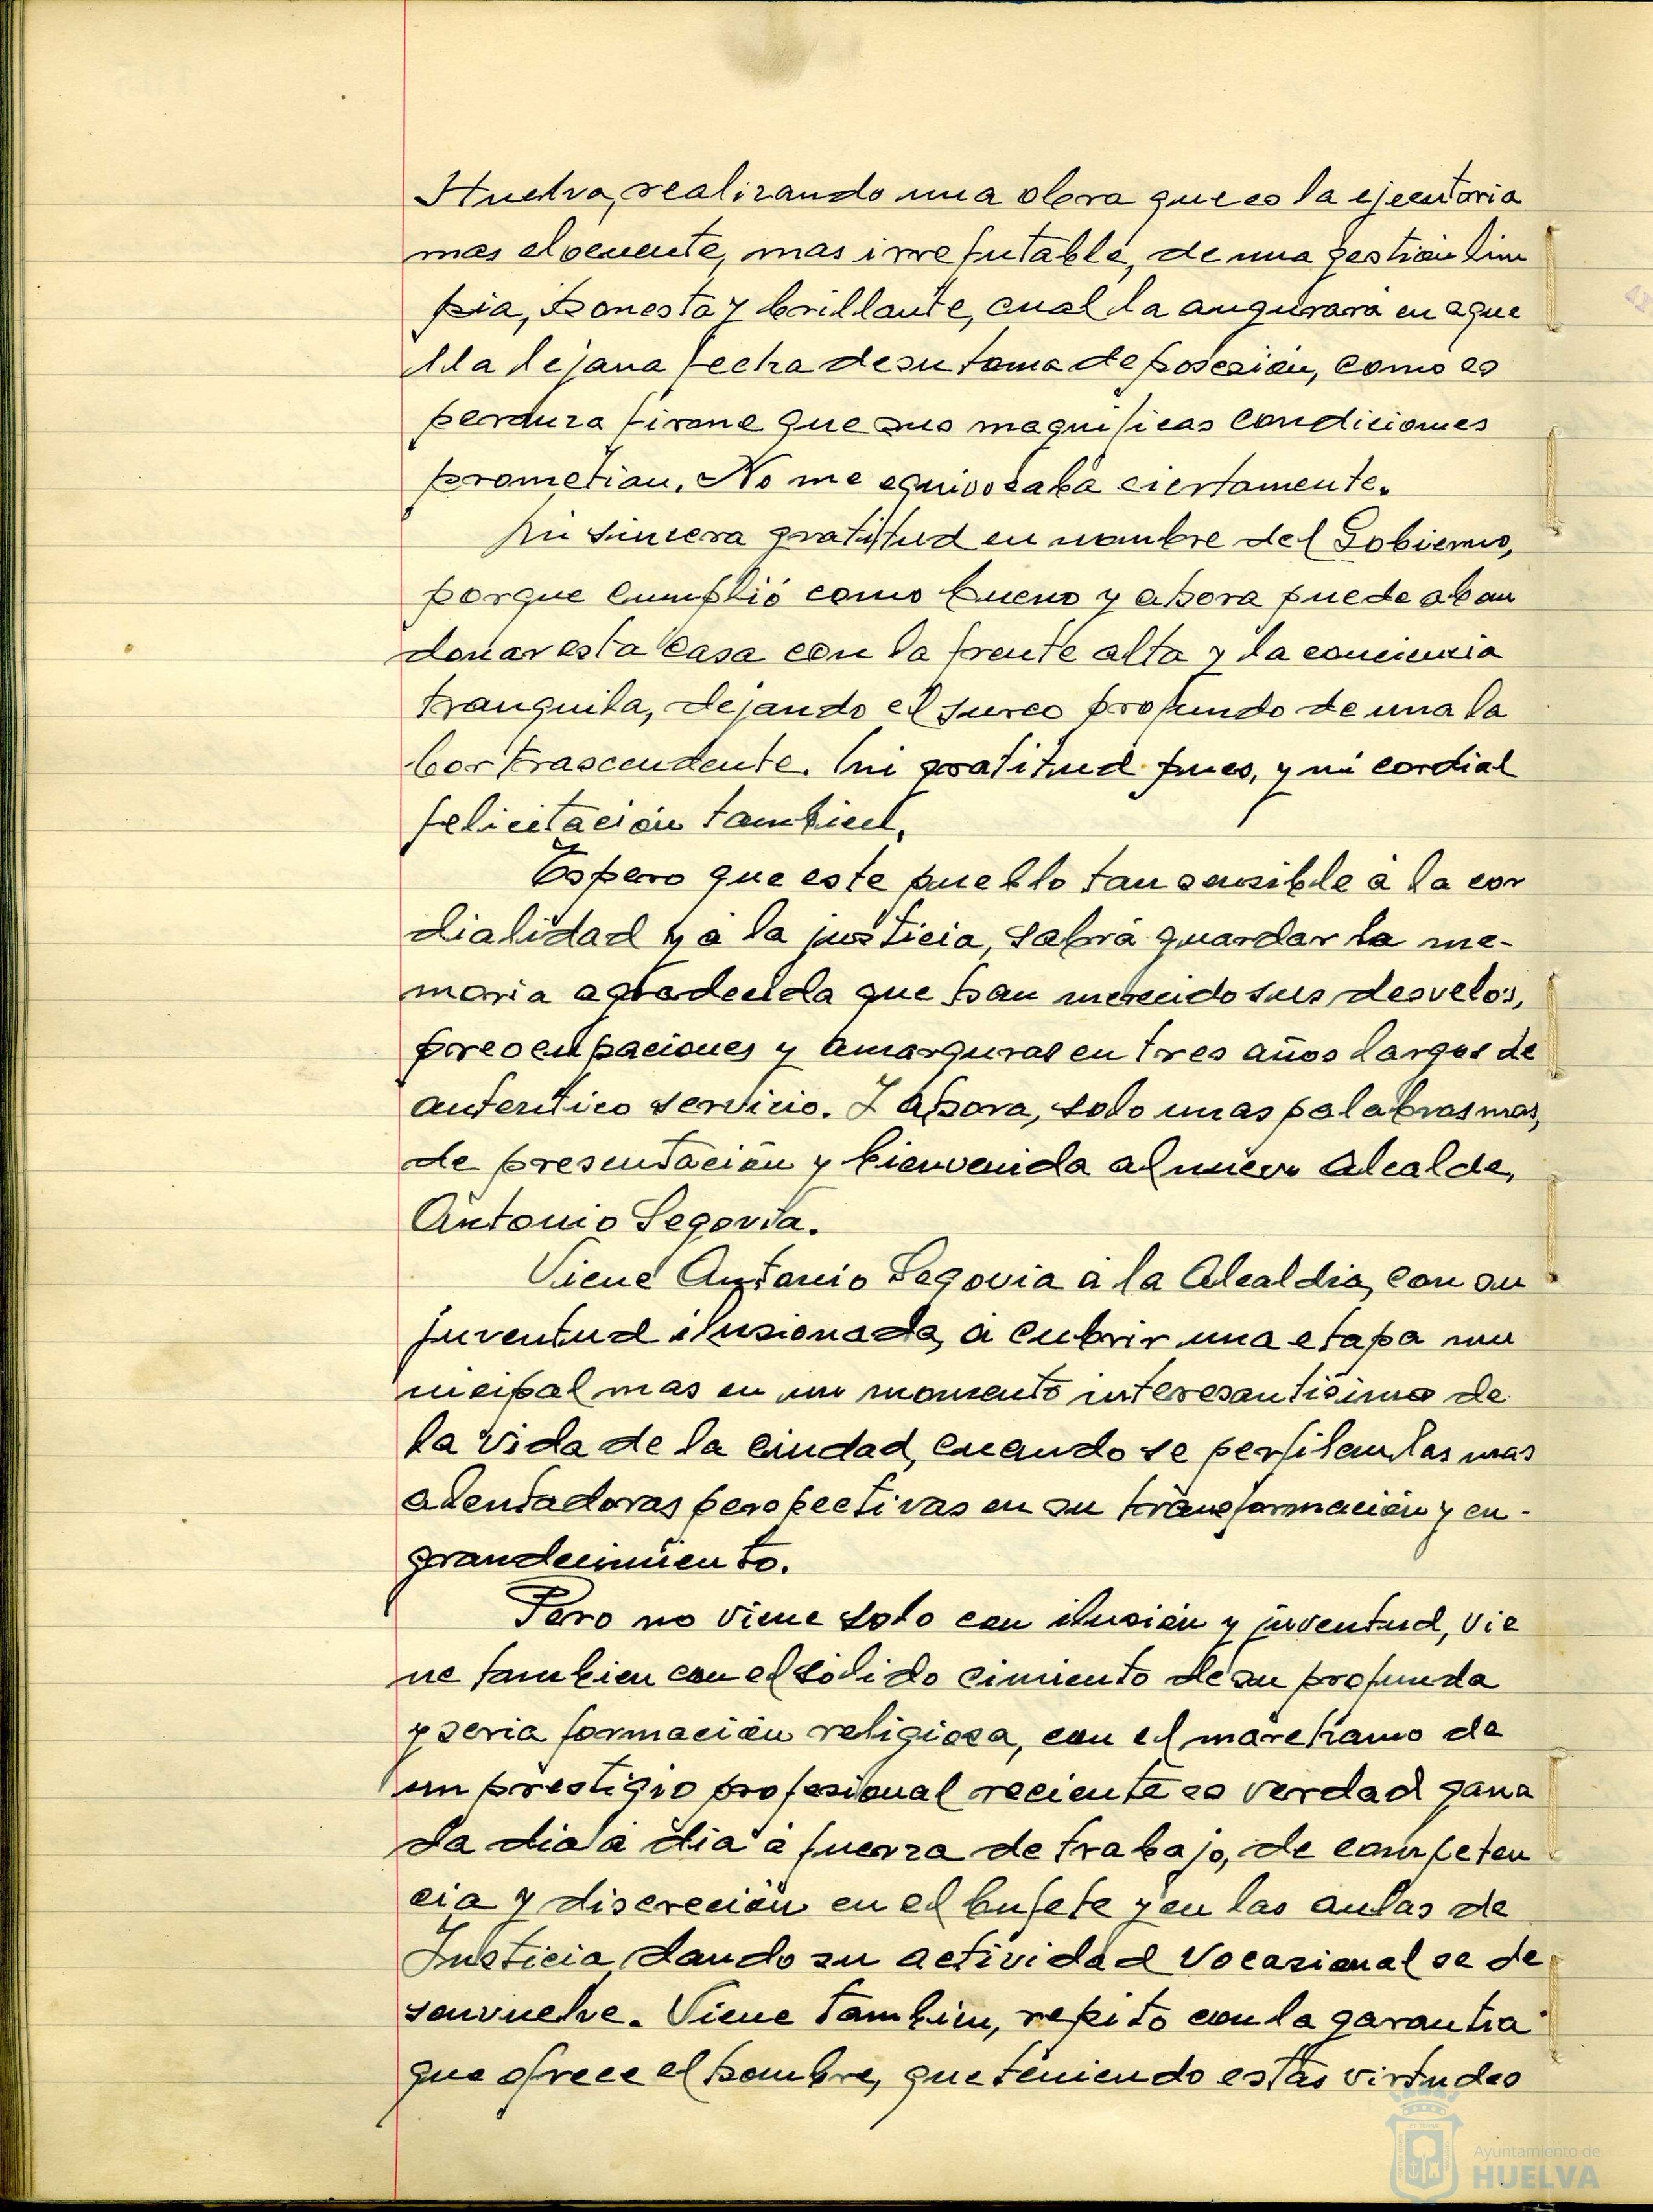 Huelva, realizando una obra que es la ejecutoria
mas elocuente, mas irrefutable, de una gestión lim
pia, honesta y brillante, cual la augurara en aque
lla lejana fecha de su toma de posesión, como es
perduza firme que sus magnificas condiciones
prometian. No me equivocaba ciertamente.
Mi sincera gratitud en nombre del Gobierno,
porque cumplió como bueno y ahora puede aban
donar esta casa con la frente alta y la conciencia
tranquila, dejando el surco profundo de una la
bor trascendente. Mi gratitud pues, y mi cordial
felicitación tambien.
Espero que este pueblo tan sensible à la cor
dialidad y à la justicia, sabrá guardar la me-
moria agradecida que han merecido sus desvelos,
preocupaciones y amarguras en tres años largos de
autentico servicio. Y ahora, solo unas palabras mas,
de presentación y bienvenida al nuevo Alcalde,
Antonio Segovia.
Viene Antonio Segovia à la Alcaldia, con su
juventud ilusionada, à cubrir una etapa mu
nicipal mas en un momento interesantisimo de
la vida de la ciudad, cuando se perfilan las mas
alentadoras perspectivas en su transformación y en-
grandecimiento.
Pero no viene solo con ilusión y juventud, vie
ne tambien con el sólido cimiento de su profunda
y seria formación religiosa, con el marchamo de
un prestigio profesional reciente es verdad gana
da dia à dia à fuerza de trabajo, de competen
cia y discreción en el bufete y en las aulas de
Justicia dando su actividad vocasional se de
senvuelve. Viene tambien, repito con la garantia
que ofrece el hombre, que teniendo estas virtudes
Ayuntamiento de
HUELVA